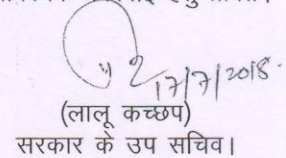 17/7/2018.
(लालू कच्छप)
सरकार के उप सचिव।